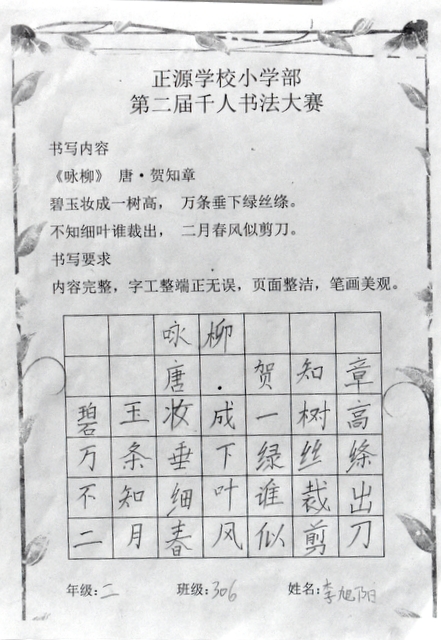 正源学校小学部
第二届千人书法大赛
书写内容
《咏柳》 唐·贺知章
碧玉妆成一树高， 万条垂下绿丝绦。
不知细叶谁裁出， 二月春风似剪刀。
书写要求
内容完整，字工整端正无误，页面整洁，笔画美观。
咏柳
唐·贺知章
碧玉妆成一树高
万条垂下绿丝绦
不知细叶谁裁出
二月春风似剪刀
年级：二 班级：306 姓名：李旭阳